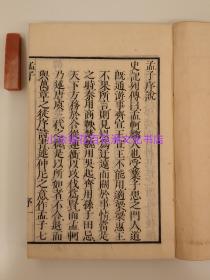 孟子序說
史記列傳曰孟軻騶人也受業子思之門人道
既通游事齊宣王宣王不能用適梁梁惠王
不果所言則見以為迂遠而闊於事情當是
之時秦用商鞅楚魏用吳起齊用孫子田忌
天下方務於合從連衡以攻伐為賢而孟軻
乃述唐虞三代之德是以所如者不合退而
與萬章之徒序詩書述仲尼之意作孟子七
孟子 序